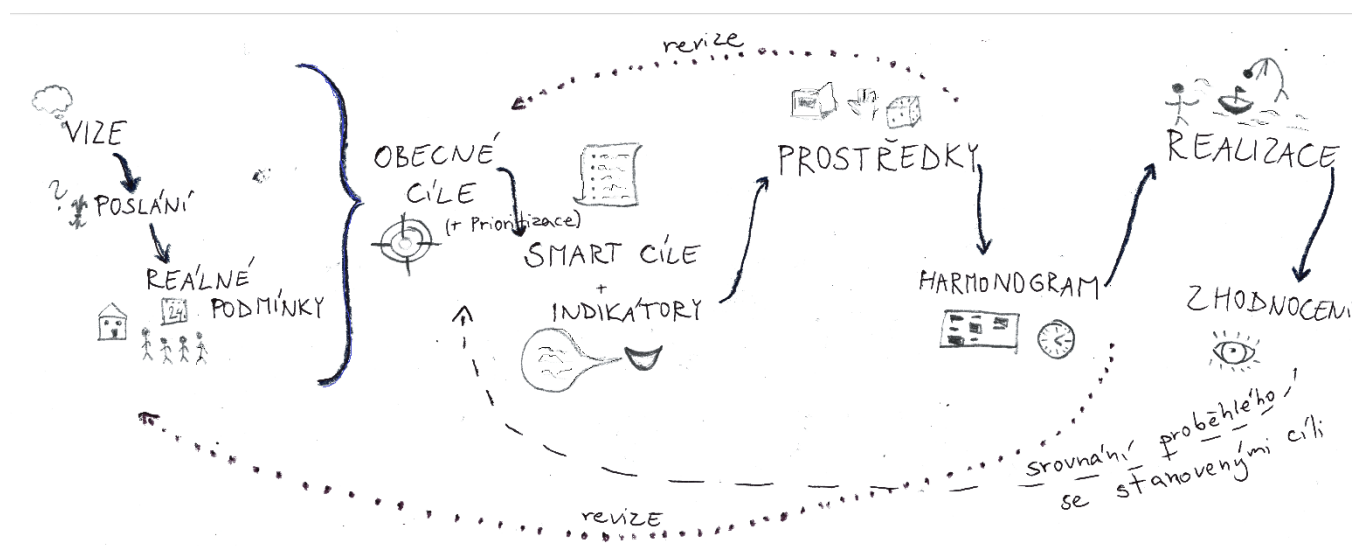 revize
VIZE
POSLÁNÍ
REÁLNÉ
PODMÍNKY
24
OBECNÉ
CÍLE
(+ Prioritizace)
SMART CÍLE
+
INDIKÁTORY
PROSTŘEDKY
HARMONOGRAM
REALIZACE
ZHODNOCENÍ
srovnání proběhlého
se stanovenými cíli
revize